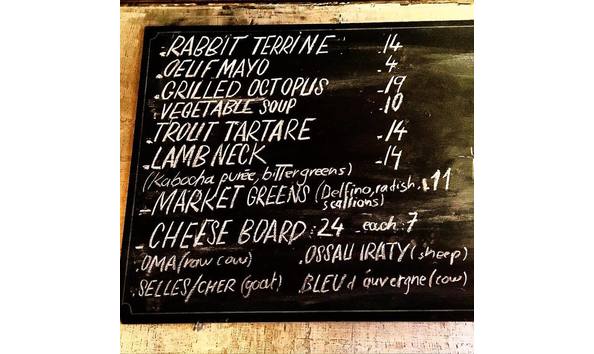 -RABBIT TERRINE -14
.OEUF MAYO -4
-GRILLED OCTOPUS -19
VEGETABLE SOUP .10
-TROUT TARTARE -14
-LAMB NECK -14
(Kabocha purée, bitter greens)
-MARKET GREENS (Delfino, radish, scallions) .11
-CHEESE BOARD : 24 -each : 7
.OMA (raw cow) .OSSAU IRATY (sheep)
.SELLES/CHER (goat) .BLEU d'auvergne (cow)